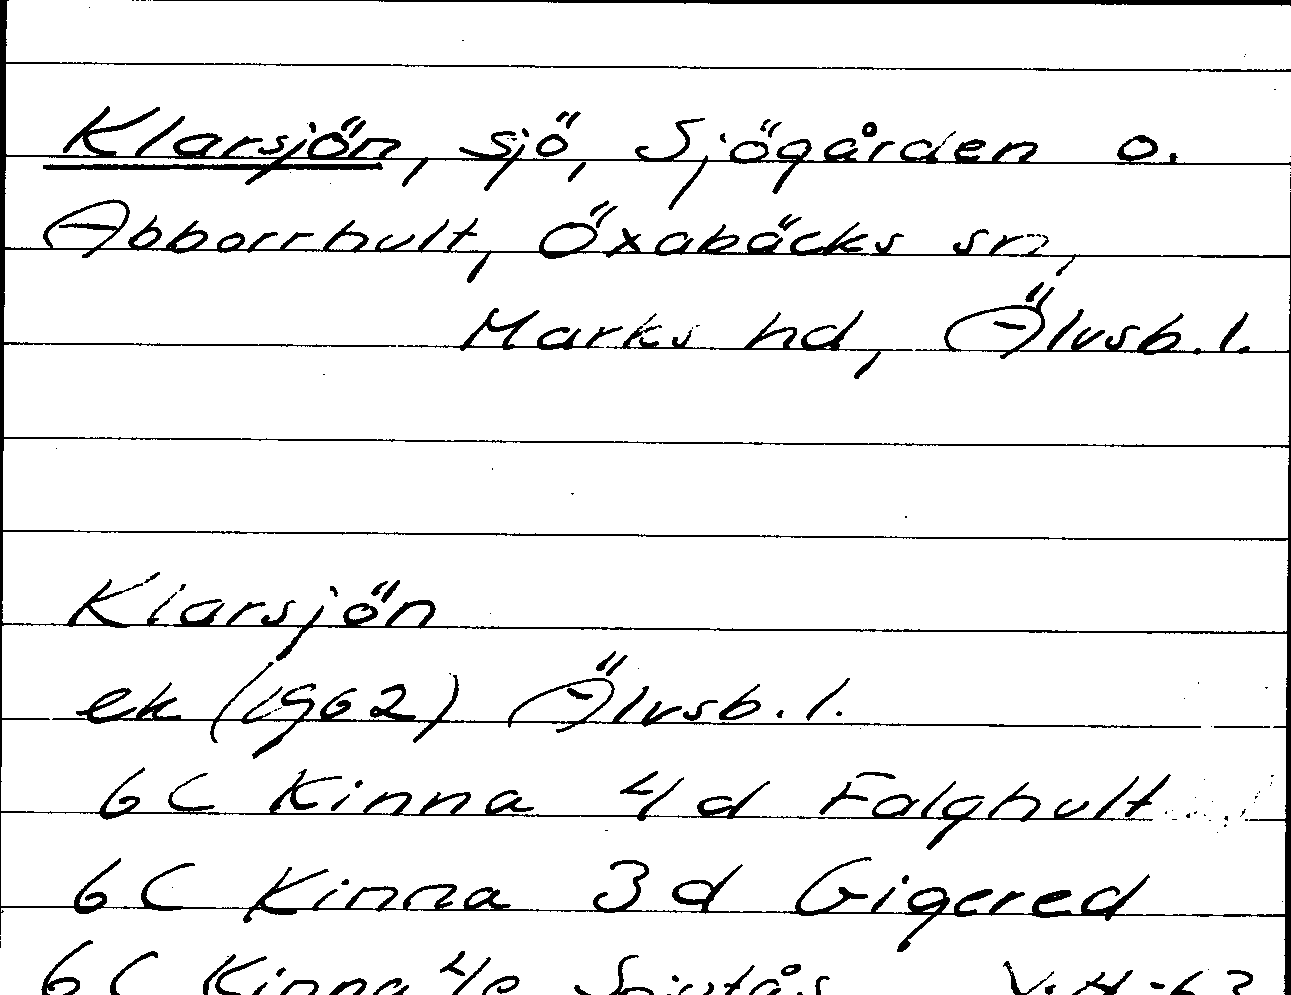 Klarsjön, sjö, Sjögården o.
Abborrhult, Öxabäcks sn,
Marks hd, Älvsb. l.
Klarsjön
ek (1962) Älvsb. l.
6C Kinna 4d Falghult
6C Kinna 3d Gigered
6C Kinna 4e